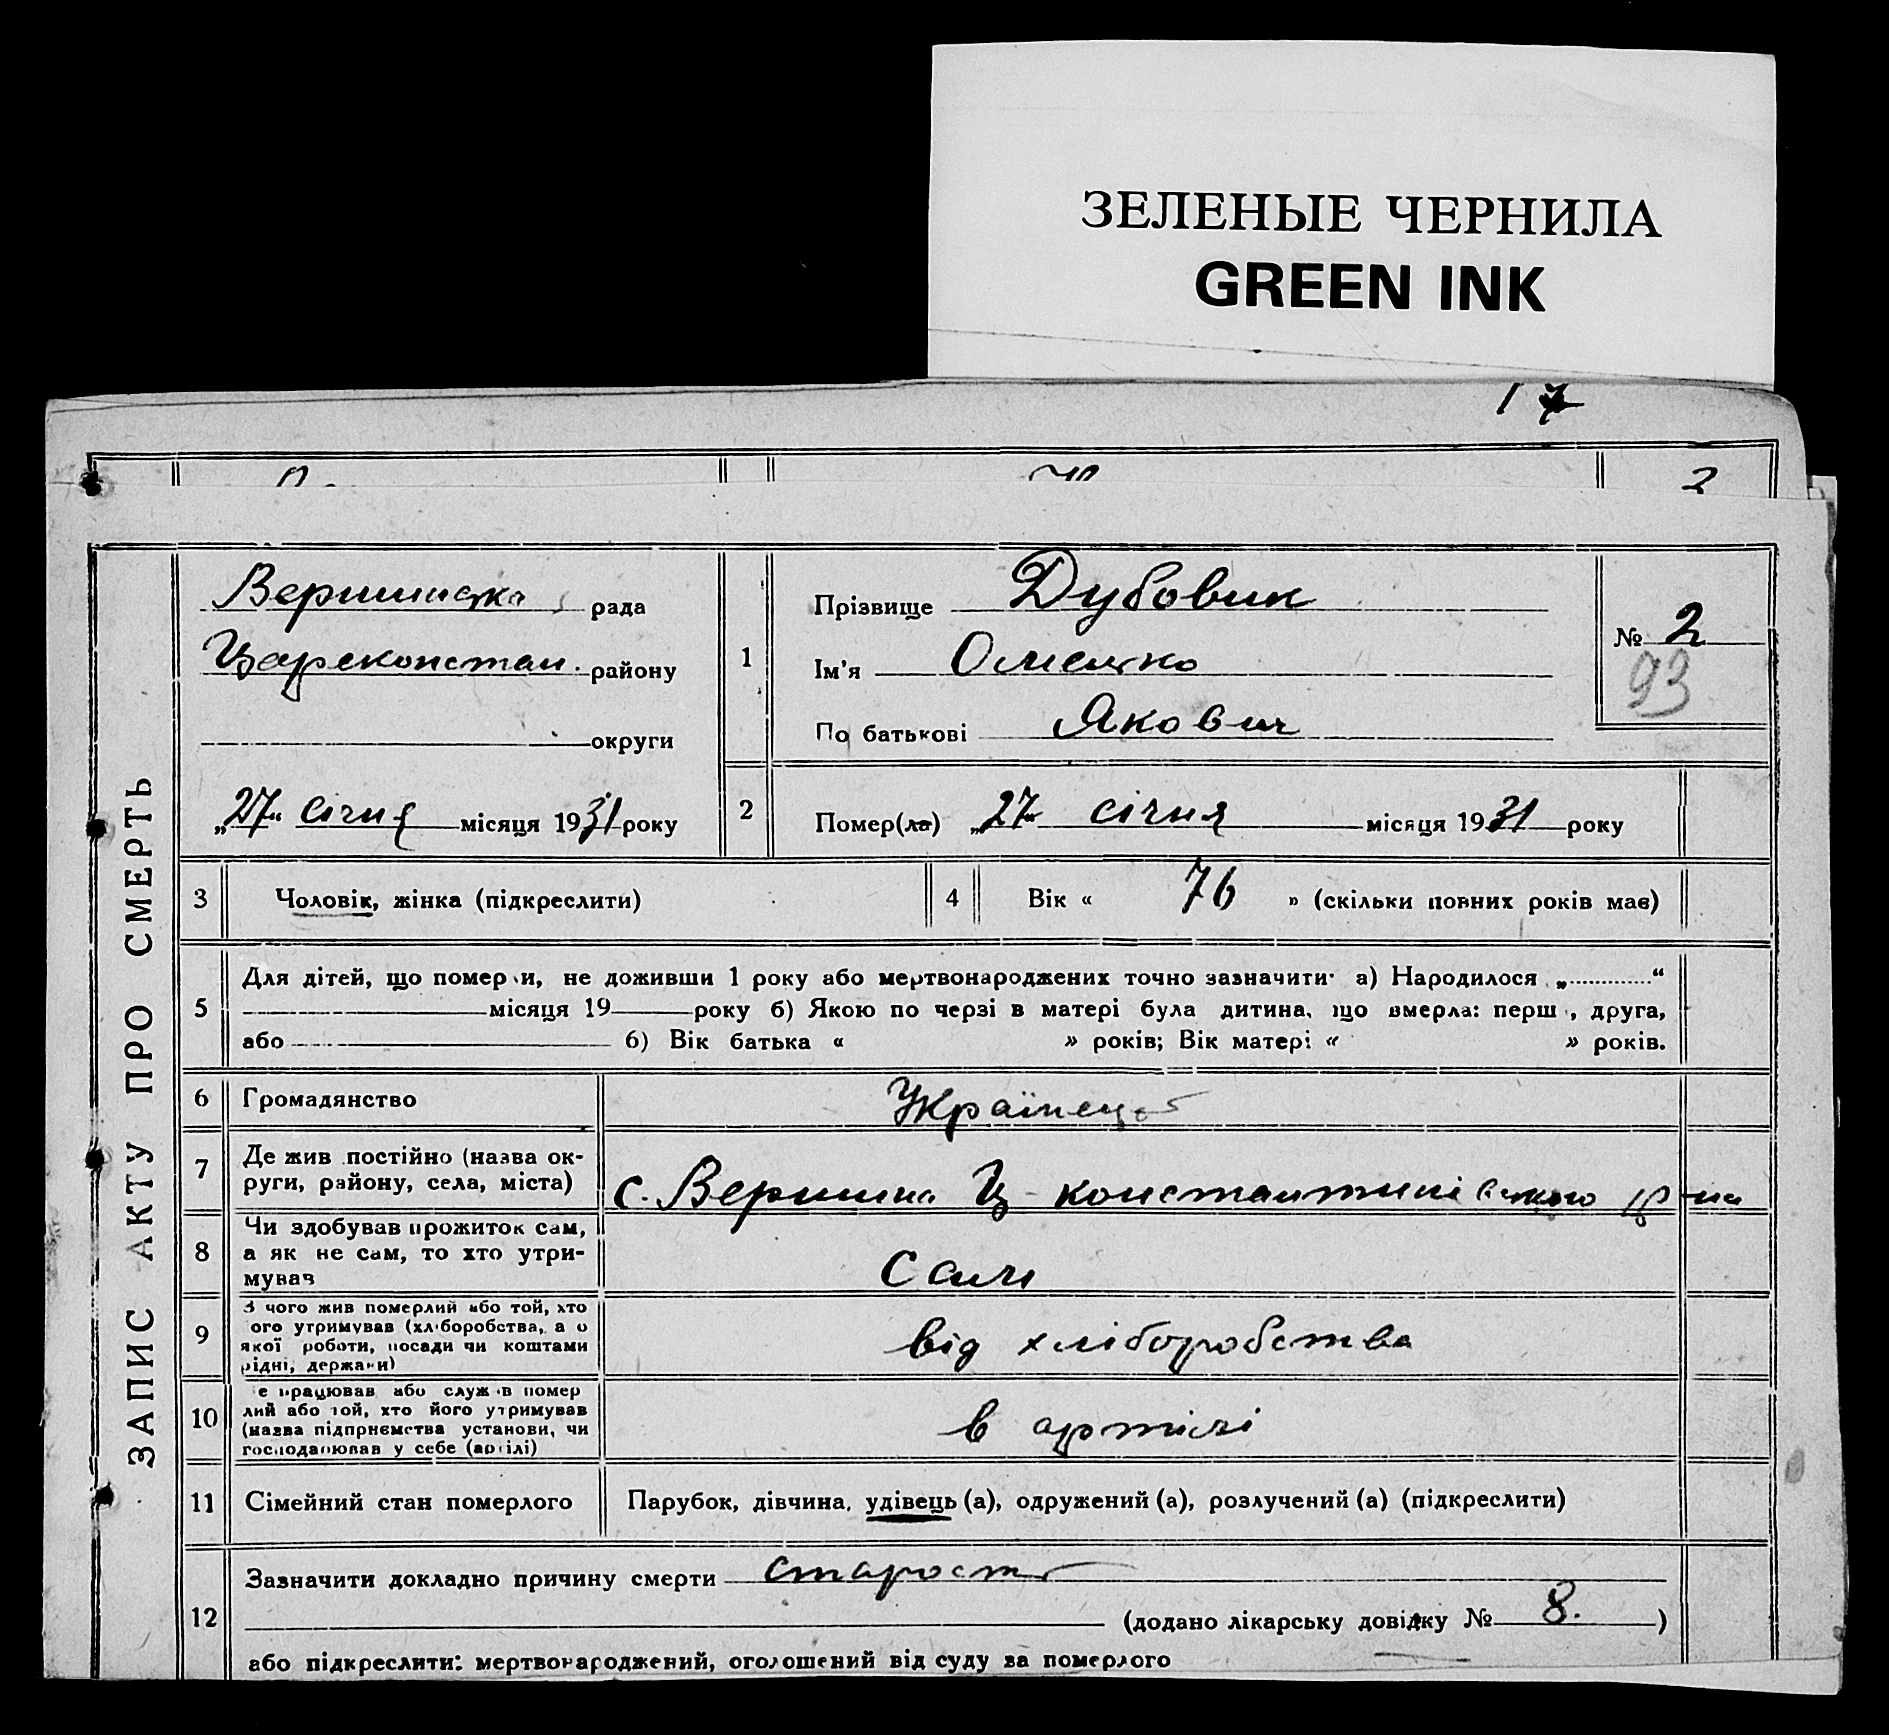 ЗЕЛЕНЫЕ ЧЕРНИЛА
GREEN INK
17
2
ЗАПИС АКТУ ПРО СМЕРТЬ
Вершинська рада
Цареконстан. району
округи
„27“ січня місяця 1931 року
1
Прізвище Дубовик
Ім'я Омелько
По батькові Якович
№ 2
93
2
Помер(ла) „27“ січня місяця 1931 року
3 Чоловік, жінка (підкреслити)
4 Вік « 76 » (скільки повних років має)
5
Для дітей, що померли, не доживши 1 року або мертвонароджених точно зазначити: а) Народилося „ “
місяця 19 року б) Якою по черзі в матері була дитина, що вмерла: перша, друга,
або б) Вік батька « » років; Вік матері « » років.
6 Громадянство Українець
7 Де жив постійно (назва ок-
руги, району, села, міста) с. Вершина Ц-константинівського р-на
8 Чи здобував прожиток сам,
а як не сам, то хто утри-
мував Сам
9 З чого жив померлий або той, хто
ого утримував (хліборобства, а о
якої роботи, посади чи коштами
рідні, держави) від хліборобства
10 е працював або служив помер
лий або той, хто його утримував
(назва підприємства установи, чи
господарював у себе (артілі) в артілі
11 Сімейний стан померлого Парубок, дівчина, удівець (а), одружений (а), розлучений (а) (підкреслити)
12
Зазначити докладно причину смерти старость
(додано лікарську довідку № 8. )
або підкреслити: мертвонароджений, оголошений від суду за померлого